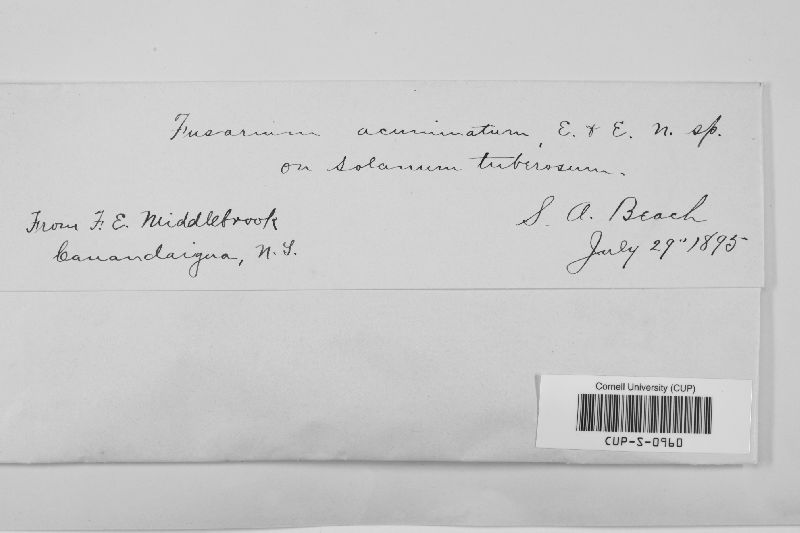 Fusarium acuminatum, E. & E. n. sp.
on Solanum tuberosum.
From F. E. Middlebrook
Canandaigua, N.Y.
S. A. Beach
July 29" 1895
Cornell University (CUP)
CUP-S-0960